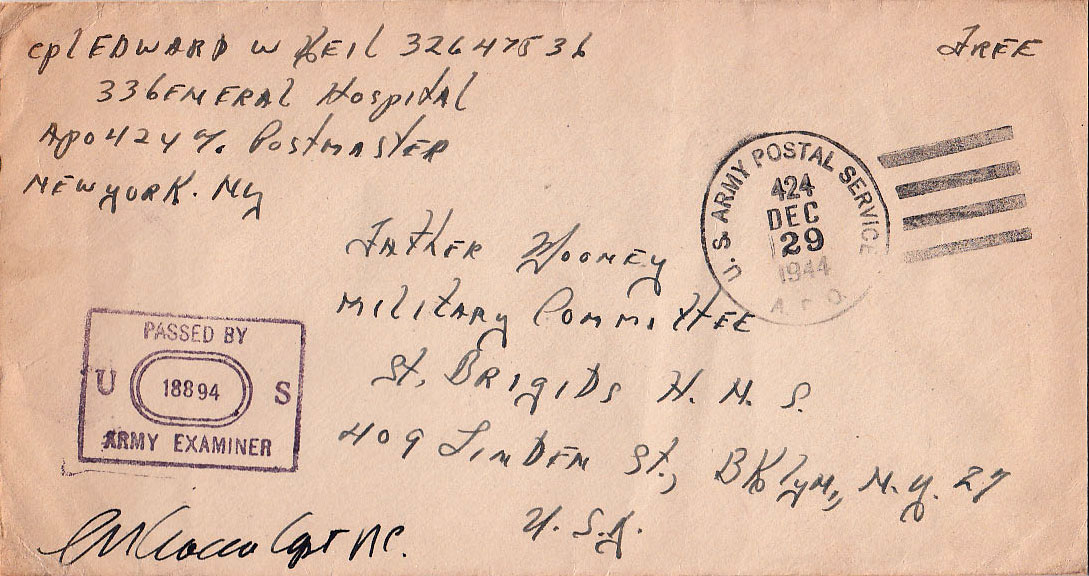 Cpl EDWARD W Keil 32647536
FREE
33 GENERAL Hospital
APO 424 % Postmaster
NEW YORK. NY
U.S. ARMY POSTAL SERVICE
424
DEC
29
1944
A.P.O.
Father
Military Committee
St. Brigids H. N. S.
409 Linden St., BKlyn, N.Y. 27
U.S.A.
PASSED BY
U 18894 S
ARMY EXAMINER
Capt